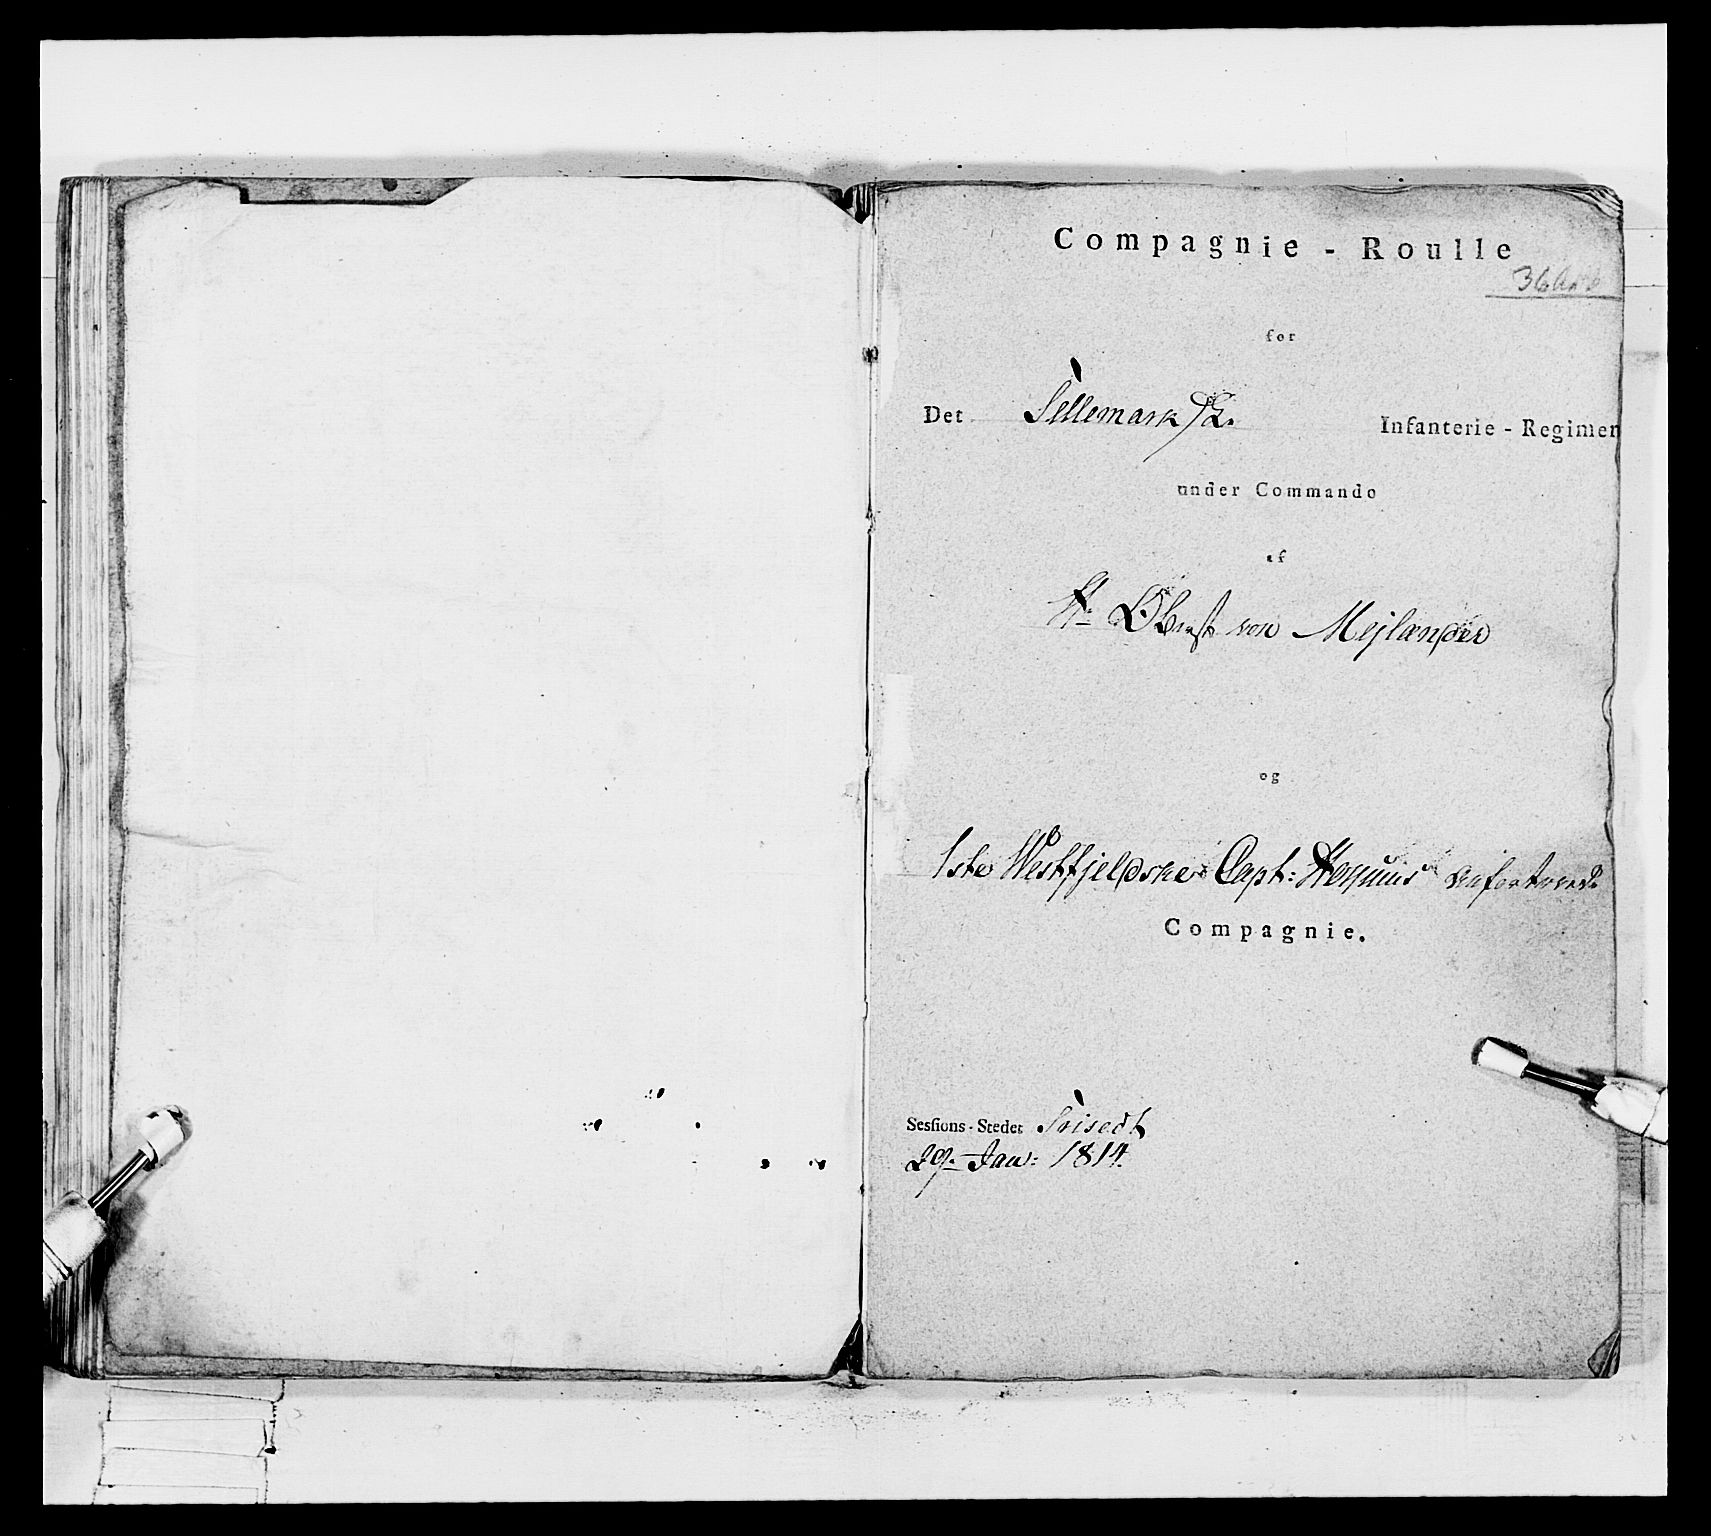 Compagnie - Roulle
for
Det Tellemarkske Infanterie - Regimen
under Commando
af
Hr Oberst von Mejlænder
og
1ste Westfjeldske Capt: anfortroede
Compagnie.
Sessions-Stedet Trisedt
29. Jan: 1814.